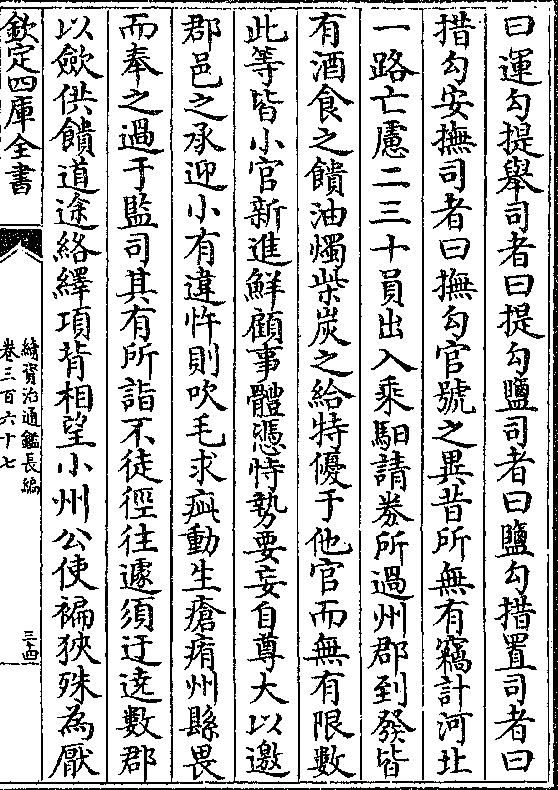 曰運勾提舉司者曰提勾鹽司者曰鹽勾措置司者曰
措勾安撫司者曰撫勾官號之異昔所無有竊計河北
一路亡慮二三十員出入乘馹請劵所過州郡到發皆
有酒食之饋油燭柴炭之給特優于他官而無有限數
此等皆小官新進鮮顧事體憑恃勢要妄自尊大以邀
郡邑之承迎小有違忤則吹毛求疵動生瘡痏州縣畏
而奉之過于監司其有所詣不徒徑往遽須迂遶數郡
以歛供饋道途絡繹項背相望小州公使褊狹殊為厭
欽定四庫全書
續資治通鑑長編
卷三百六十七
三四